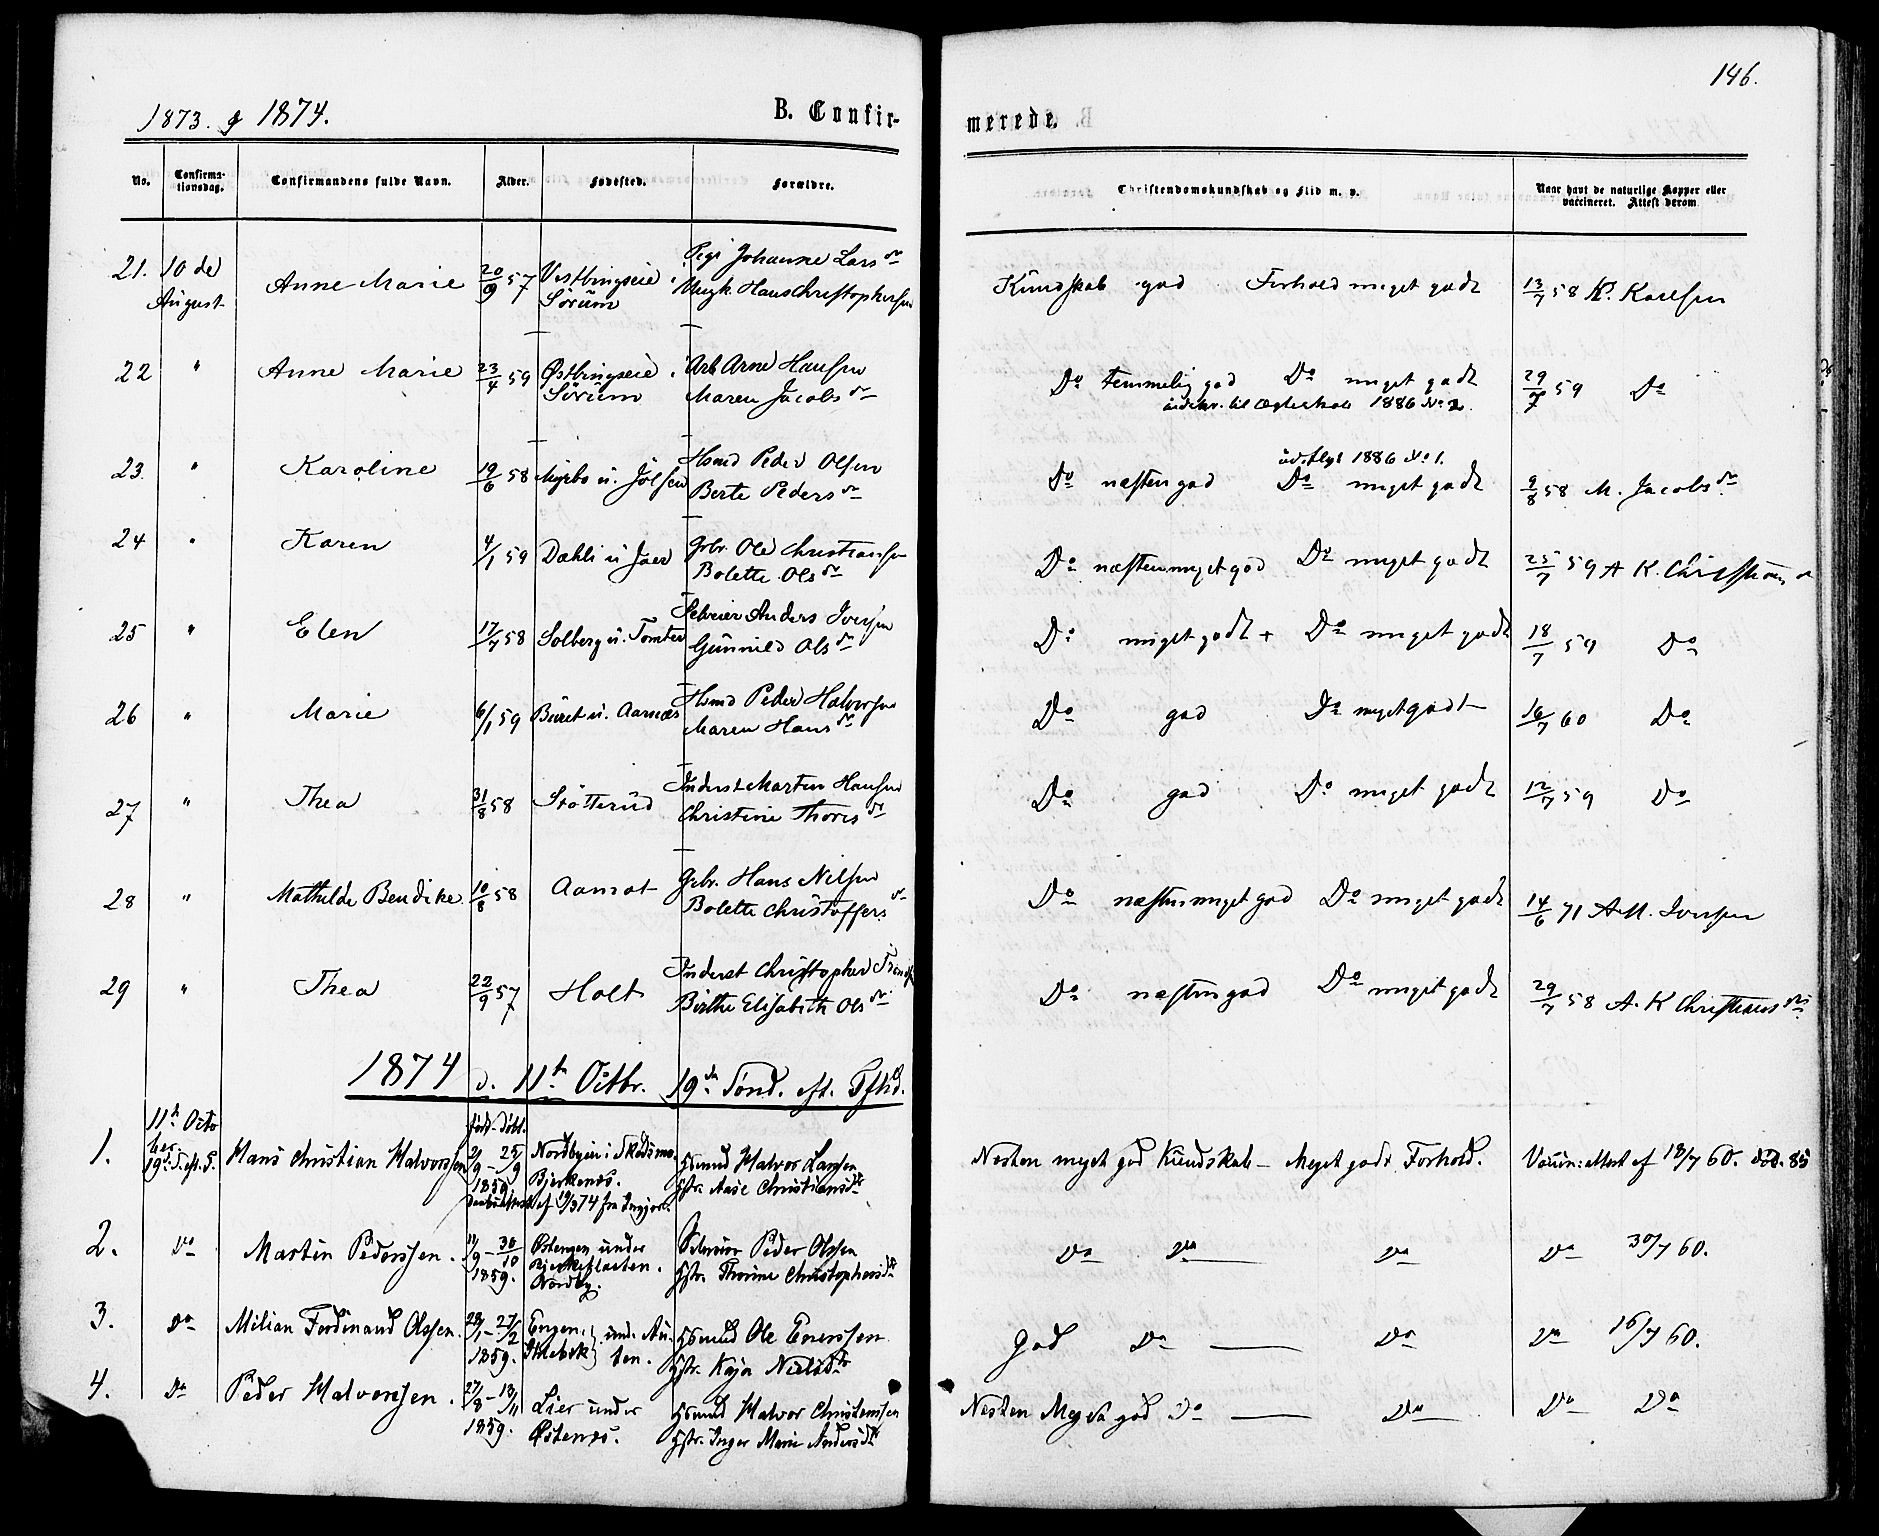 146.
1873. g 1874. B. Confirmerede.
No. Confirmationsdag. Confirmandens fulde Navn. Alder. Fødested. Forældre. Christendomskundskab og Flid m. v. Naar havt de naturlige Kopper eller vaccineret. Attest derom
21. 10de August Anne Marie 20/9 57 Vestbingseie i Sörum Pige Johanne Lars dr Ungk. Hans Christophersen Kundskab god Forhold meget godt 13/7 58 Karlsen
22 " Anne Marie 23/4 59 Østbingseie i Sörum Arb Arne Hansen Maren Jacobs dr Do temmelig god Do meget godt 29/7 59 Do
til Ægteskab 1886 No 2.
23 " Karoline 19/6 58 Myrbo u. Jölsen Hsmd Peder Olsen Berte Peders dr Do næsten god Do meget godt 9/8 58 M. Jacobs dr
udflyt 1886 No 1.
24 " Karen 4/1 59 Dæhli u Jaer Grbr. Ole Christiansen Bolette Ols dr Do næsten meget god Do meget godt 25/7 59 A K. Christians dr
25 " Elen 17/7 58 Solberg u. Tomter Selveier Anders Iversen Gunnild Ols dr Do meget godt + Do meget godt 18/7 59 Do
26 " Marie 6/1 59 Buret u. Aarnæs Hsmd Peder Halvorsen Maren Hans dr Do god Do meget godt 16/7 60 Do
27 " Thea 31/8 58 Stötterud Inderst Martin Hansen Christine Thores dr Do god Do meget godt 12/7 59 Do
28 " Mathilde Bendike 10/8 58 Aamot Grbr. Hans Nilsen Bolette Christoffers dr Do næsten meget god Do meget godt 14/6 71 A. M. Iversen
29 " Thea 22/9 57 Holt Inderst Christopher Birthe Elisabeth Ols dr Do næsten god Do meget godt 29/7 58 A. K Christians dr
1874 d. 11te Octbr. 19de Sønd. eft. Tftid.
født døbt.
1. 11te October 19de S. eft. T. Hans Christian Halvorssen 2/9 - 25/9 1859. Nordbyen i Skedsmo. Bjerkenæs. Hsmd Halvor Larssen Hstr. Aase Christiansdtr Nesten meget god Kundskab - Meget godt Forhold. Vaccin: attest af 18/7 60.
2. Do Martin Pederssen. 11/9 - 30/10 1859. Østengen under Bjerkeflaten. Nordby. Selveier Peder Olssen Hstr. Thorine Christophersdtr Do Do Do Do 30/7 60.
3. Do Milian Ferdinand Olssen. 29/1 - 27/2 1859. Engen, und. Au- ten. Hsmd Ole Enerssen Hstr. Kaja Nielsdtr God Do Do Do 16/7 60.
4. Do Peder Halvorssen. 27/8 - 13/11 1859. Lier under Østenæs. Hsmd Halvor Christenssen Hstr. Inger Marie Andersdtr Nesten Meget god Do Do Do Do